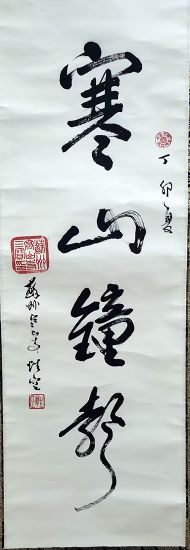 丁卯夏
寒山鐘聲
蘇州寒山寺性空